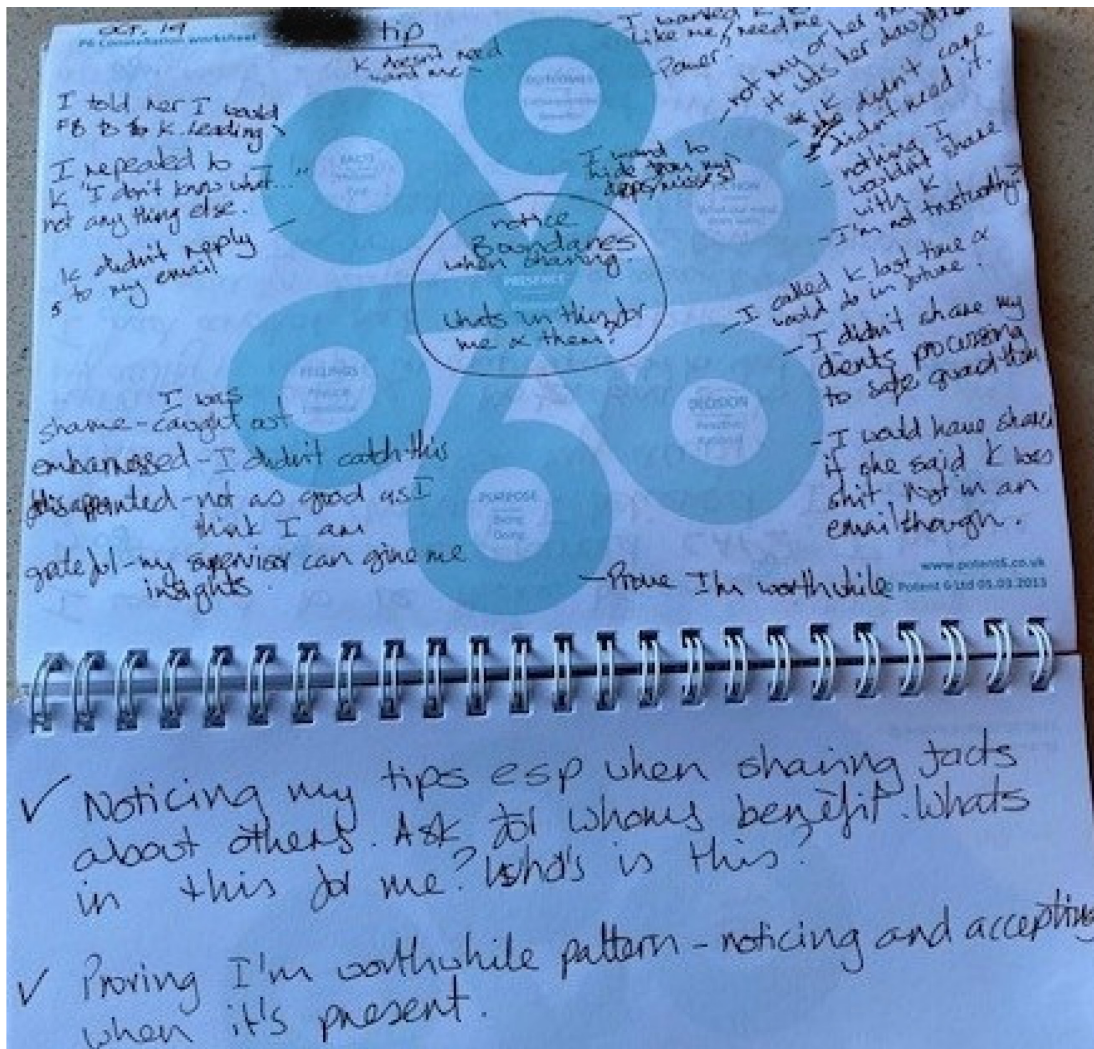 Oct, 19
P6 Constellation worksheet
tip
K doesn't need
I wanted K to
like me, need me.
- Power.
I told her I would
FB to K. Leading
I repeated to
K "I don't know what..."
not any thing else.
K didn't reply
to my email
FACTS
OUTCOMES
I want to
hide from my
- not my or her
it was her daughter
K didn't care
didn't need it.
- nothing I
wouldn't share
with K
- I'm not trustworthy?
notice
Boundaries
when sharing.
PRESENCE
whats in this for
me & them?
- I called K last time &
would do in future.
- I didn't share my
clients processing
to safe guard them
- I would have shared
if she said K was
shit. Not in an
email though.
FEELINGS
Physical
Emotional
DECISION
Reactive
Rational
I was
shame - caught out
embarressed - I didn't catch this
disappointed - not as good as I
think I am
grateful - my supervisor can give me
insights.
PURPOSE
Being
Doing
- Prove I'm worthwhile
www.potent6.co.uk
© Potent 6 Ltd 05.03.2013
✓ Noticing my tips esp when sharing facts
about others. Ask for whoms benefit. Whats
in this for me? Who's is this?
✓ Proving I'm worthwhile pattern - noticing and accepting
when it's present.